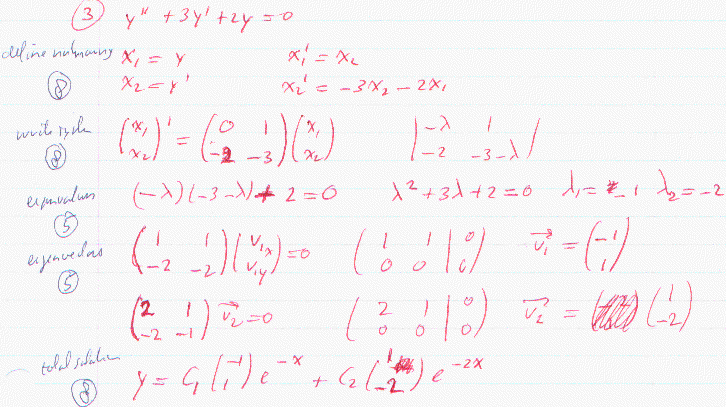 ③ y'' + 3y' + 2y = 0
x₁ = y x₁' = x₂
x₂ = y' x₂' = -3x₂ - 2x₁
⑧
write system (x₁ x₂)' = (0 1 -2 -3)(x₁ x₂) |-λ 1 -2 -3-λ|
⑧
eigenvalues (-λ)(-3-λ) + 2 = 0 λ² + 3λ + 2 = 0 λ₁ = -1 λ₂ = -2
⑤
eigenvectors (1 1 -2 -2)(v₁ₓ v₁y) = 0 (1 1 | 0 0 0 | 0) v₁ = (-1 1)
⑤
(2 1 -2 -1) v₂ = 0 (2 1 | 0 0 0 | 0) v₂ = (1 -2)
total solution
⑧ y = C₁ (-1 1) e^-x + C₂ (1 -2) e^-2x